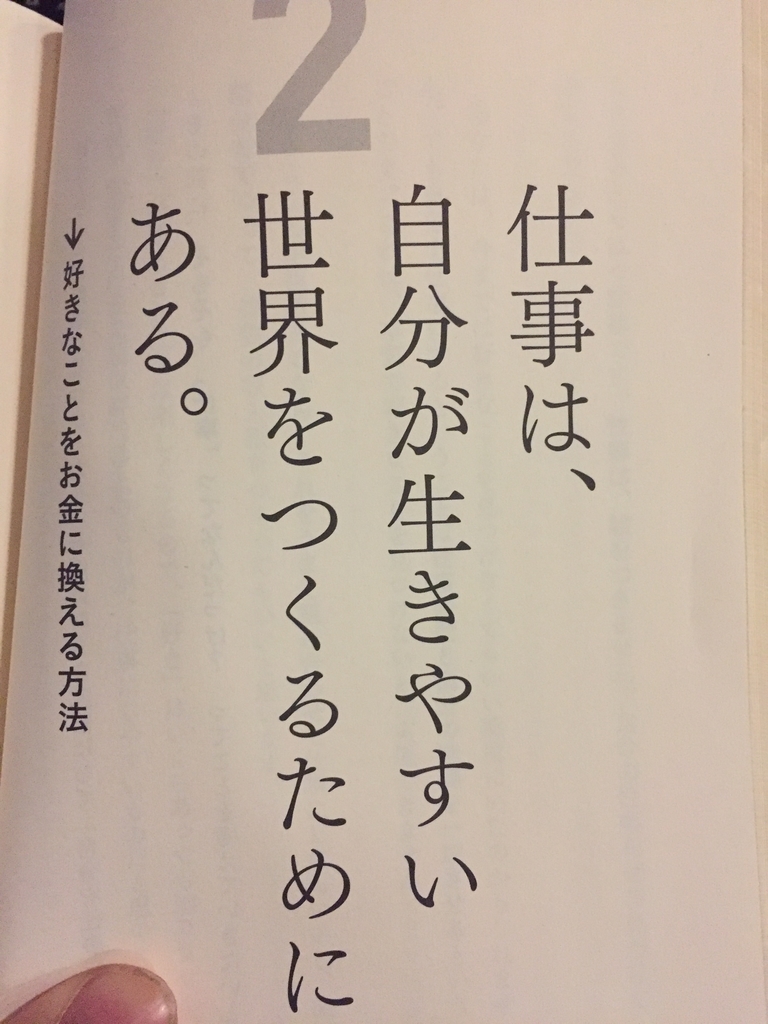 2
仕事は、
自分が生きやすい
世界をつくるために
ある。
↓好きなことをお金に換える方法